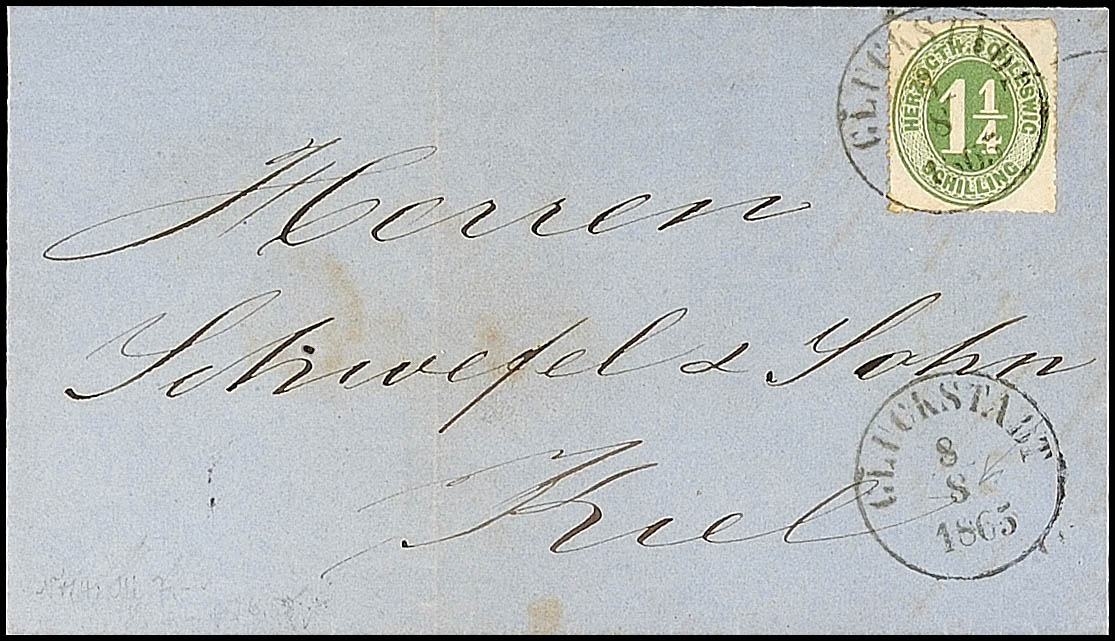 GLÜCKSTADT
8
HERZOGTH. SCHLESWIG
1 1/4
SCHILLING
Herren
Schwefel & Sohn
Kiel
GLÜCKSTADT
8
8
1865